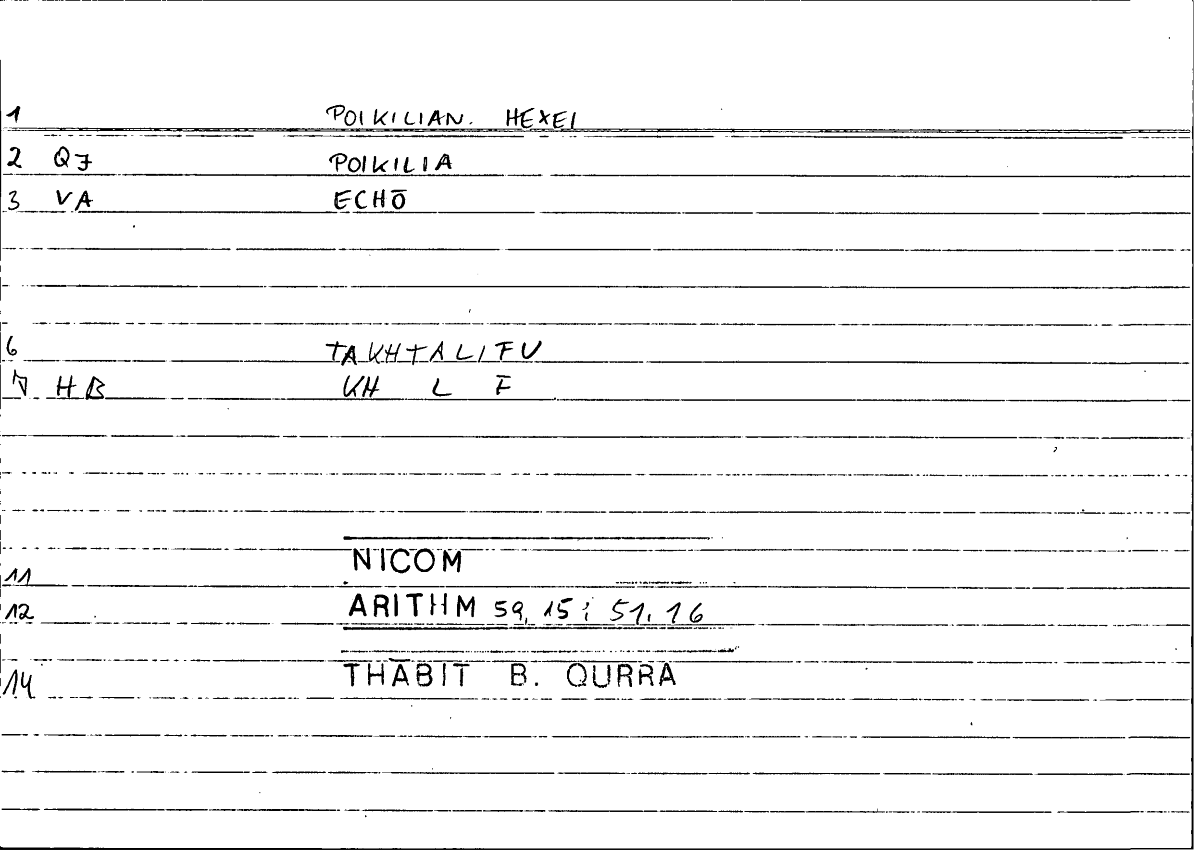 1 POIKILIAN. HEXEI
2 QJ POIKILIA
3 VA ECHŌ
6 TAKHTALIFU
7 HB KH L F
11 NICOM
12 ARITHM 59, 15 ; 51, 16
14 THĀBIT B. QURRA